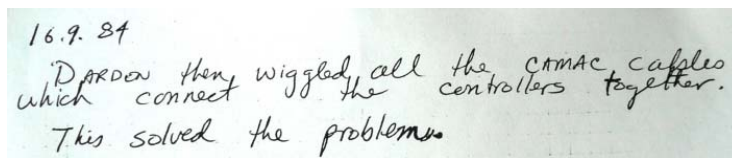 16.9.84
DARDON then wiggled all the CAMAC cables
which connect the controllers together.
This solved the problem